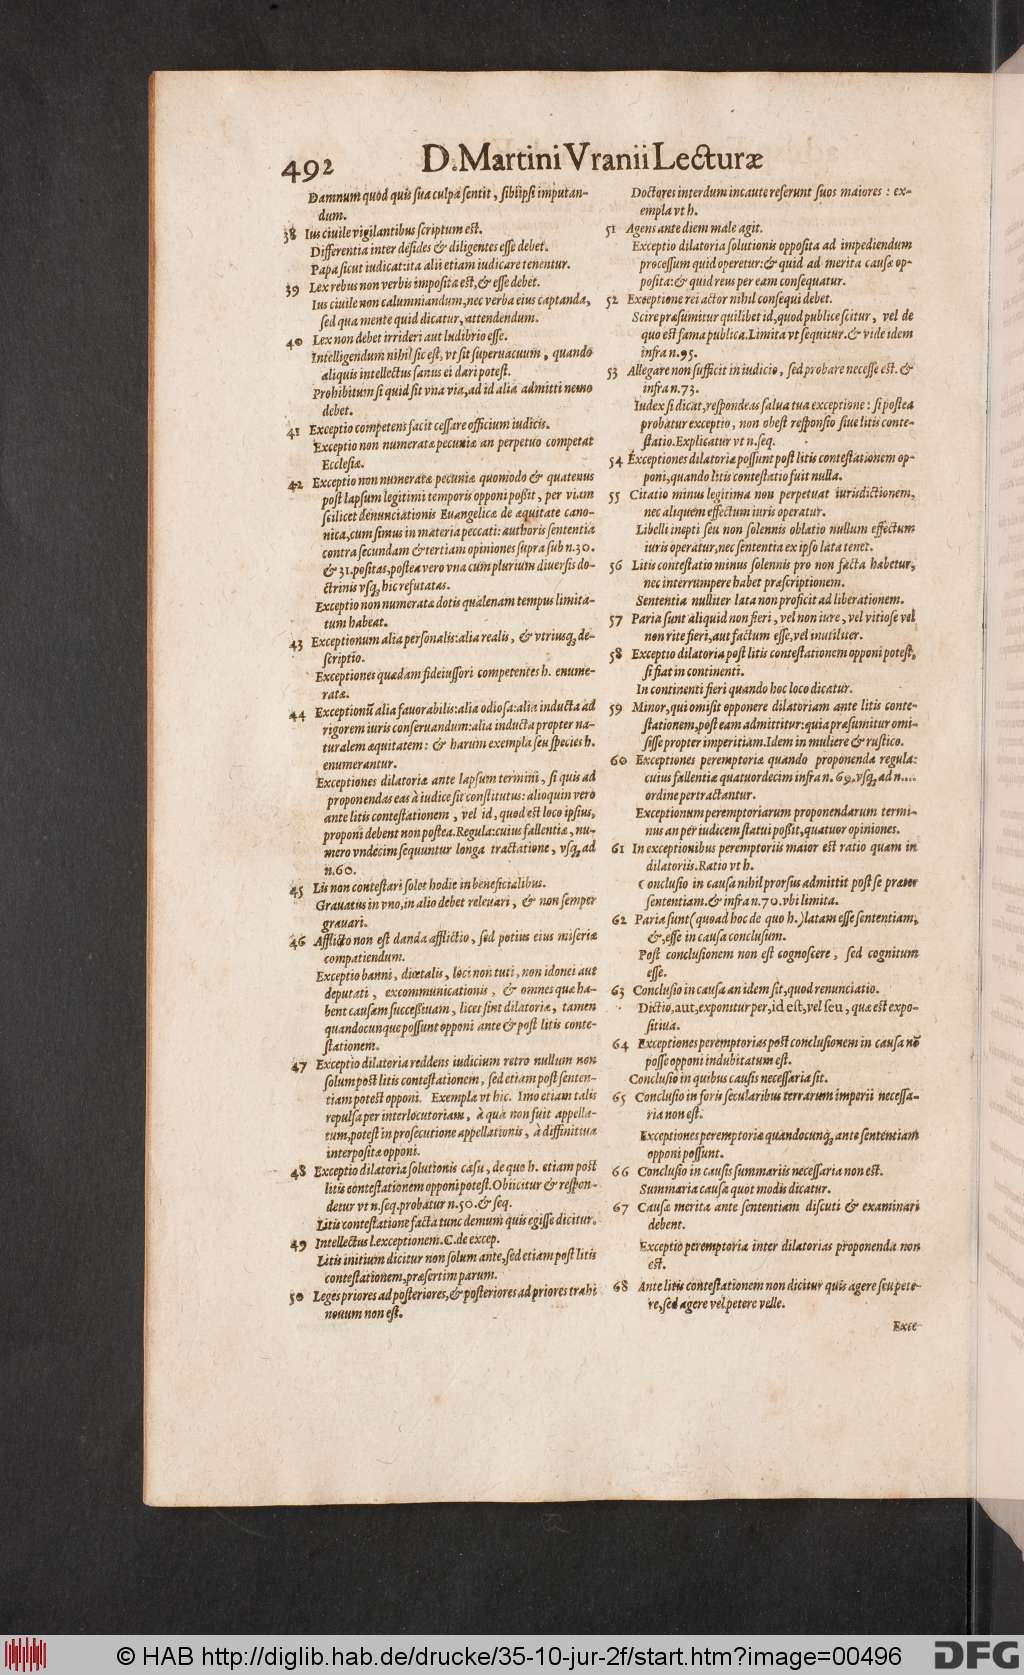 492 D. Martini Vranii Lecturæ
Damnum quod quis sua culpa sentit, sibiipsi imputan-
dum.
38 Ius ciuile vigilantibus scriptum est.
Differentia inter desides & diligentes esse debet.
Papa sicut iudicat: ita alii etiam iudicare tenentur.
39 Lex rebus non verbis imposita est, & esse debet.
Ius ciuile non calumniandum, nec verba eius captanda,
sed qua mente quid dicatur, attendendum.
40 Lex non debet irrideri aut ludibrio esse.
Intelligendum nihil sic est, vt sit superuacuum, quando
aliquis intellectus sanus ei dari potest.
Prohibitum si quid sit vna via, ad id alia admitti nemo
debet.
41 Exceptio competens facit cessare officium iudicis.
Exceptio non numeratæ pecuniæ an perpetuo competat
Ecclesiæ.
42 Exceptio non numeratæ pecuniæ quomodo & quatenus
post lapsum legitimi temporis opponi possit, per viam
scilicet denunciationis Euangelicæ de æquitate cano-
nica, cum simus in materia peccati: authoris sententia
contra secundam & tertiam opiniones supra sub n. 30.
& 31. positas, postea vero vna cum plurium diuersis do-
ctrinis vsq; hic refutatas.
Exceptio non numeratæ dotis qualenam tempus limita-
tum habeat.
43 Exceptionum alia personalis: alia realis, & vtriusq; de-
scriptio.
Exceptiones quædam fideiussori competentes h. enume-
ratæ.
44 Exceptionũ alia fauorabilis: alia odiosa: alia inducta ad
rigorem iuris conseruandum: alia inducta propter na-
turalem æquitatem: & harum exempla seu species h.
enumerantur.
Exceptiones dilatoriæ ante lapsum termini, si quis ad
proponendas eas à iudice sit constitutus: alioquin vero
ante litis contestationem, vel id, quod est loco ipsius,
proponi debent non postea. Regula: cuius fallentiæ, nu-
mero vndecim sequuntur longa tractatione, vsq; ad
n. 60.
45 Lis non contestari solet hodie in beneficialibus.
Grauatus in vno, in alio debet releuari, & non semper
grauari.
46 Afflicto non est danda afflictio, sed potius eius miseriæ
compatiendum.
Exceptio banni, diœtalis, loci non tuti, non idonei aut
deputati, excommunicationis, & omnes quæ ha-
bent causam successiuam, licet sint dilatoriæ, tamen
quandocunque possunt opponi ante & post litis conte-
stationem.
47 Exceptio dilatoria reddens iudicium retro nullum non
solum post litis contestationem, sed etiam post senten-
tiam potest opponi. Exempla vt hic. Imo etiam talis
repulsa per interlocutoriam, à qua non fuit appella-
tum, potest in prosecutione appellationis, à diffinitiua
interposita opponi.
48 Exceptio dilatoria solutionis casu, de quo h. etiam post
litis contestationem opponi potest. Obiicitur & respon-
detur vt n. seq. probatur n. 50. & seq.
Litis contestatione facta tunc demum quis egisse dicitur.
49 Intellectus l. exceptionem. C. de excep.
Litis initium dicitur non solum ante, sed etiam post litis
contestationem, præsertim parum.
50 Leges priores ad posteriores, & posteriores ad priores trahi
nouum non est.
Doctores interdum incaute referunt suos maiores: ex-
empla vt h.
51 Agens ante diem male agit.
Exceptio dilatoria solutionis opposita ad impediendum
processum quid operetur: & quid ad merita causæ op-
posita: & quid reus per eam consequatur.
52 Exceptione rei actor nihil consequi debet.
Scire præsumitur quilibet id, quod publice scitur, vel de
quo est fama publica. Limita vt sequitur. & vide idem
infra n. 95.
53 Allegare non sufficit in iudicio, sed probare necesse est. &
infra n. 73.
Iudex si dicat, respondeas salua tua exceptione: si postea
probatur exceptio, non obest responsio siue litis conte-
statio. Explicatur vt n. seq.
54 Exceptiones dilatoriæ possunt post litis contestationem op-
poni, quando litis contestatio fuit nulla.
55 Citatio minus legitima non perpetuat iurisdictionem,
nec aliquem effectum iuris operatur.
Libelli inepti seu non solennis oblatio nullum effectum
iuris operatur, nec sententia ex ipso lata tenet.
56 Litis contestatio minus solennis pro non facta habetur,
nec interrumpere habet præscriptionem.
Sententia nulliter lata non proficit ad liberationem.
57 Paria sunt aliquid non fieri, vel non iure, vel vitiose vel
non rite fieri, aut factum esse, vel inutiliter.
58 Exceptio dilatoria post litis contestationem opponi potest,
si fiat in continenti.
In continenti fieri quando hoc loco dicatur.
59 Minor, qui omisit opponere dilatoriam ante litis conte-
stationem, post eam admittitur: quia præsumitur omi-
sisse propter imperitiam. Idem in muliere & rustico.
60 Exceptiones peremptoriæ quando proponendæ regula:
cuius fallentiæ quatuordecim infra n. 69. vsq; ad n....
ordine pertractantur.
Exceptionum peremptoriarum proponendarum termi-
nus an per iudicem statui possit, quatuor opiniones.
61 In exceptionibus peremptoriis maior est ratio quam in
dilatoriis. Ratio vt h.
Conclusio in causa nihil prorsus admittit post se præter
sententiam. & infra n. 70. vbi limita.
62 Paria sunt (quoad hoc de quo h.) latam esse sententiam,
&, esse in causa conclusum.
Post conclusionem non est cognoscere, sed cognitum
esse.
63 Conclusio in causa an idem sit, quod renunciatio.
Dictio, aut, exponitur per, id est, vel seu, quæ est expo-
sitiua.
64 Exceptiones peremptorias post conclusionem in causa nõ
posse opponi indubitatum est.
Conclusio in quibus causis necessaria sit.
65 Conclusio in foris secularibus terrarum imperii necessa-
ria non est.
Exceptiones peremptoriæ quandocunq; ante sententiam
opponi possunt.
66 Conclusio in causis summariis necessaria non est.
Summaria causa quot modis dicatur.
67 Causæ merita ante sententiam discuti & examinari
debent.
Exceptio peremptoria inter dilatorias proponenda non
est.
68 Ante litis contestationem non dicitur quis agere seu pete-
re, sed agere vel petere velle.
Exce-
© HAB http://diglib.hab.de/drucke/35-10-jur-2f/start.htm?image=00496
DFG